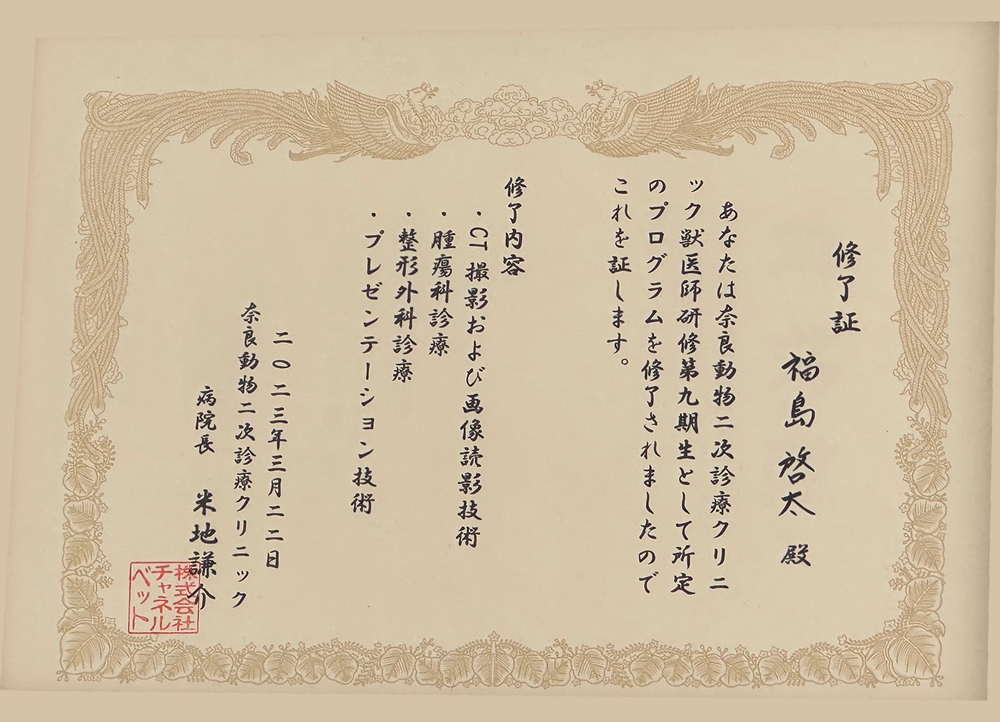 修了証
福島啓太 殿
あなたは奈良動物二次診療クリニ
ック獣医師研修第九期生として所定
のプログラムを修了されましたので
これを証します。
修了内容
・CT 撮影および画像読影技術
・腫瘍科診療
・整形外科診療
・プレゼンテーション技術
二〇二三年三月二二日
奈良動物二次診療クリニック
病院長 米地謙介
株式会社
チャネル
ベット